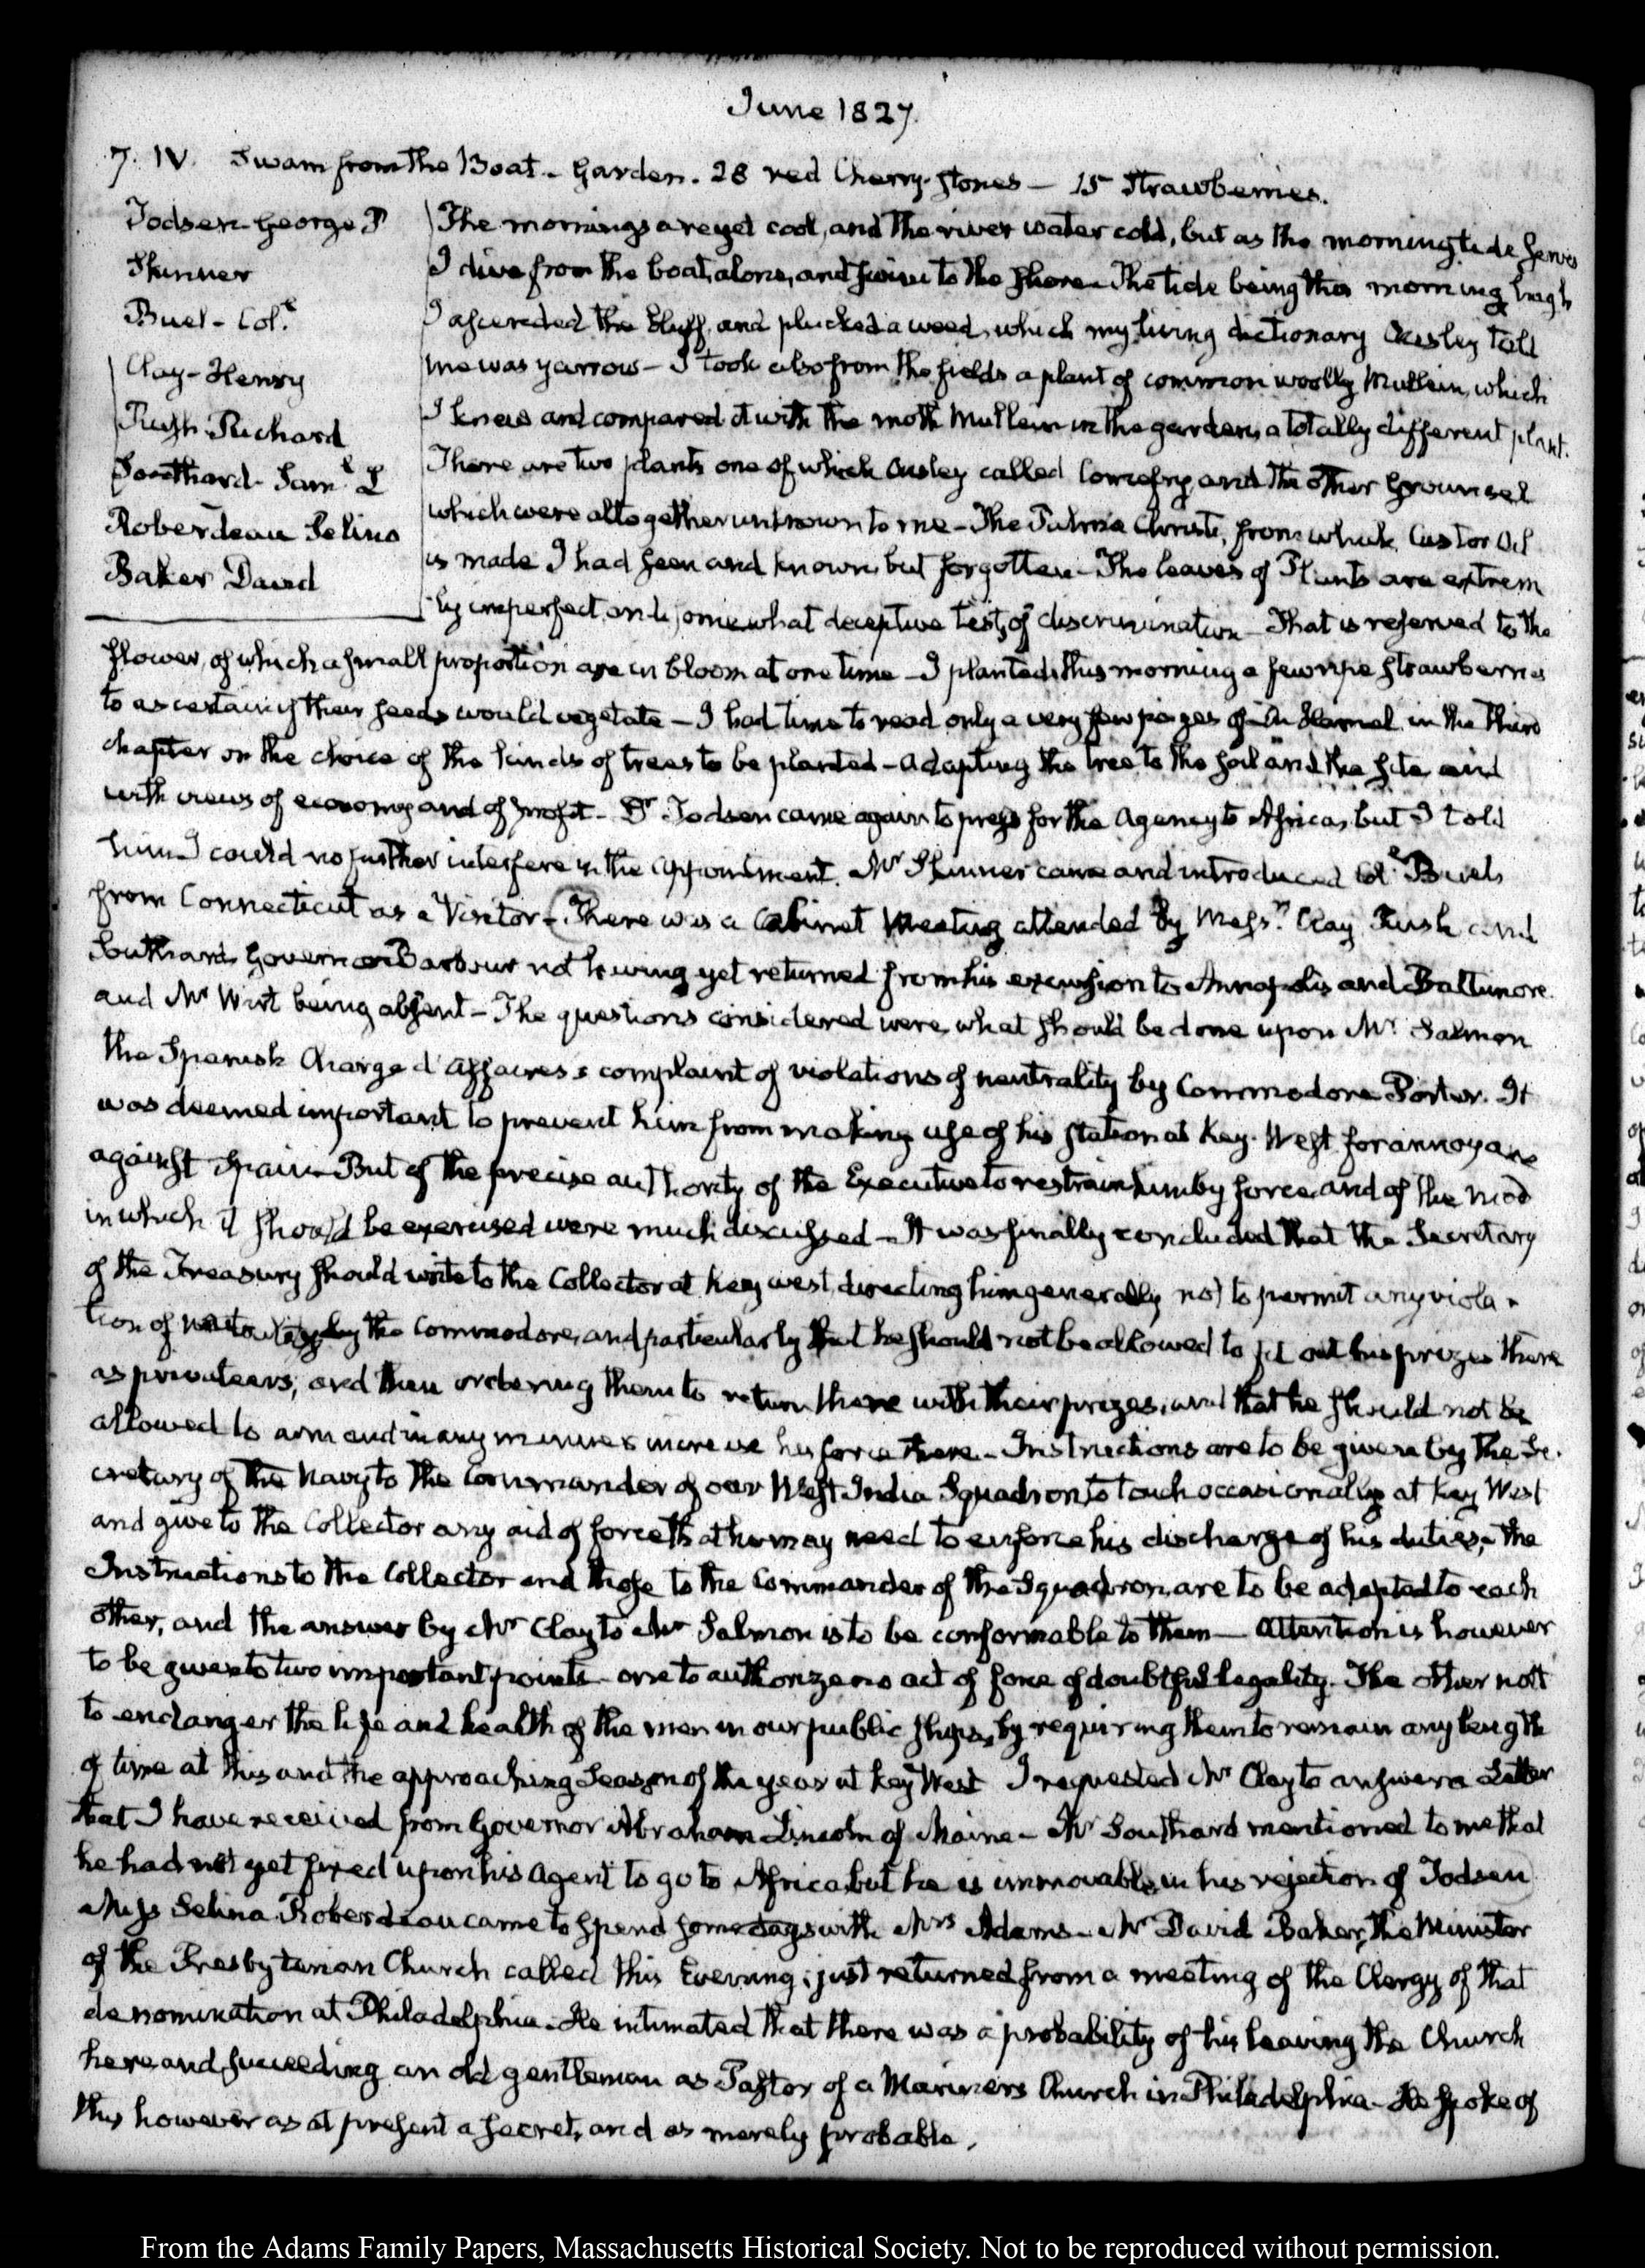 June 1827.
7. IV. Swam from the Boat - Garden. 28 red Cherry-stones — 15 Strawberries.
Todsen George P
Skinner
Buel - Col.
Clay - Henry
Rush Richard
Southard - Saml. L
Roberdeau Selina
Baker David
The mornings are yet cool, and the river water cold, but as the morning tide serves
I dive from the boat, alone, and swim to the shore - The tide being this morning high
I ascended the bluff, and plucked a weed, which my living dictionary Ousley told
me was yarrow - I took also from the fields a plant of common woolly Mullein, which
I knew and compared it with the moth Mullein in the garden, a totally different plant.
There are two plants one of which Ousley called Comfrey, and the other Grounsel
which were altogether unknown to me - The Palma Christi, from which Castor Oil
is made I had seen and known but forgotten - The leaves of Plants are extrem
ly imperfect, and somewhat deceptive tests of discrimination - That is reserved to the
flower, of which a small proportion are in bloom at one time - I planted this morning a few ripe strawberries
to ascertain if their seeds would vegetate - I had time to read only a very few pages of Du Hamel in the third
chapter on the choice of the kinds of trees to be planted - adapting the tree to the soil and the site and
with views of economy and of profit - Dr Todsen came again to press for the Agency to Africa, but I told
him I could no further interfere in the appointment. Mr Skinner came and introduced Col. Buel
from Connecticut as a Visitor - There was a Cabinet Meeting attended by Messrs. Clay Rush and
Southard, Governor Barbour not having yet returned from his excursion to Annapolis and Baltimore
and Mr Wirt being absent - The questions considered were, what should be done upon Mr Salmon
the Spanish Charge d'Affaires's complaint of violations of neutrality by Commodore Porter. It
was deemed important to prevent him from making use of his station at Key-West for annoyance
against Spain - But of the precise authority of the Executive to restrain him by force, and of the mod
in which it should be exercised were much discussed - It was finally concluded that the Secretary
of the Treasury should write to the Collector at Key west, directing him generally, not to permit any viola-
tion of neutrality by the Commodore, and particularly that he should not be allowed to fit out his prizes there
as privateers, and then ordering them to return there with their prizes, and that he should not be
allowed to arm and in any manner increase his force there - Instructions are to be given by the Se-
cretary of the Navy to the Commander of our West-India Squadron to touch occasionally at Key West
and give to the Collector any aid of force that he may need to enforce his discharge of his duties, the
Instructions to the Collector and those to the Commander of the Squadron, are to be adapted to each
other, and the answer by Mr Clay to Mr Salmon is to be conformable to them — Attention is however
to be given to two important points - one to authorize no act of force of doubtful legality. The other not
to endanger the life and health of the men in our public ships, by requiring them to remain any length
of time at this and the approaching Season of the year at Key West I requested Mr Clay to answer a Letter
that I have received from Governor Abraham Lincoln of Maine - Mr Southard mentioned to me that
he had not yet fixed upon his Agent to go to Africa, but he is immovable in his rejection of Todsen
Miss Selina Roberdeau came to spend some days with Mrs Adams - Mr David Baker, the Minister
of the Presbyterian Church called this Evening; just returned from a meeting of the Clergy of that
denomination at Philadelphia. He intimated that there was a probability of his leaving the Church
here and succeeding an old gentleman as Pastor of a Mariners Church in Philadelphia - He spoke of
this however as at present a secret, and as merely probable.
From the Adams Family Papers, Massachusetts Historical Society. Not to be reproduced without permission.